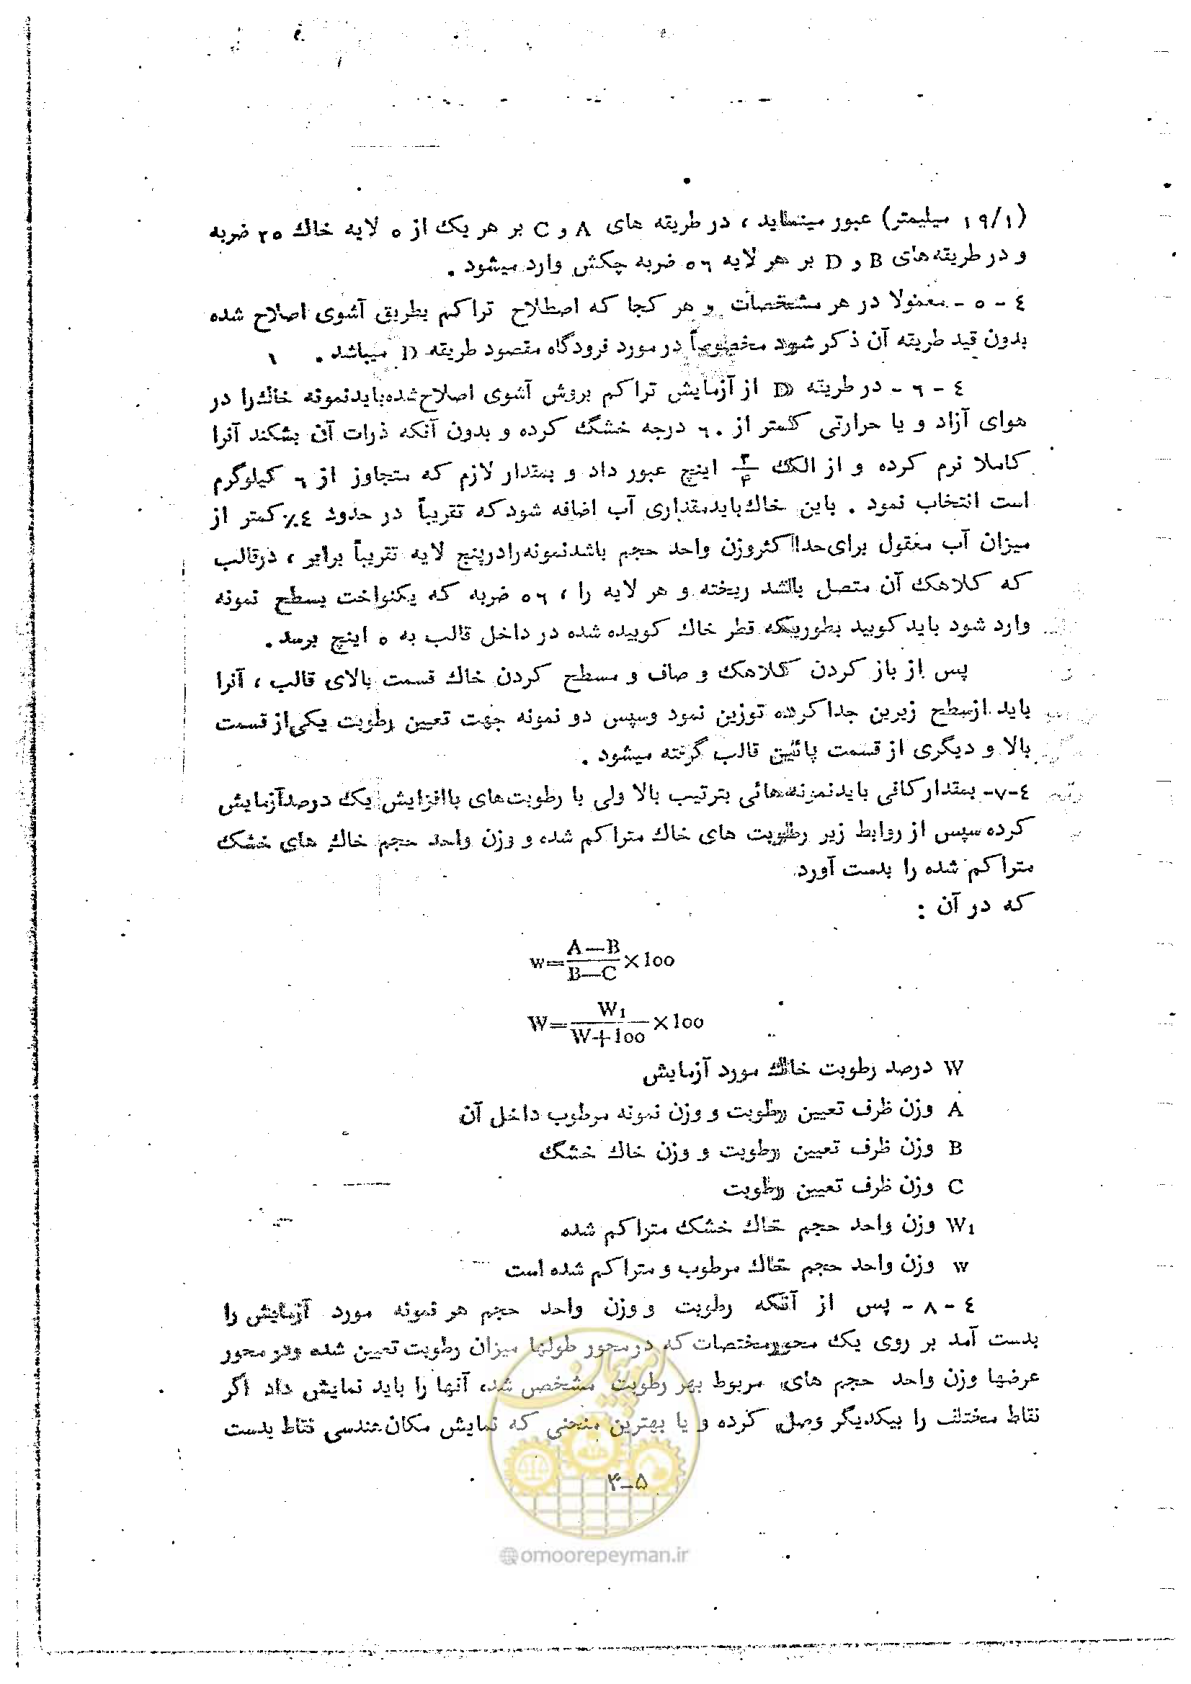 (۱۹/۱ میلیمتر) عبور مینماید ، در طریقه های A و C بر هر یک از ۵ لایه خاک ۲۵ ضربه
و در طریقه‌های B و D بر هر لایه ۵۶ ضربه چکش وارد میشود .
٤ - ۵ - معمولا در هر مشخصات و هر کجا که اصطلاح تراکم بطریق آشوی اصلاح شده
بدون قید طریقه آن ذکر شود مخصوصاً در مورد فرودگاه مقصود طریقه D میباشد . ۱
٤ - ٦ - در طریقه D از آزمایش تراکم بروش آشوی اصلاح‌شده‌باید‌نمونه خاك‌را در
هوای آزاد و یا حرارتی کمتر از ٦۰ درجه خشگ کرده و بدون آنکه ذرات آن بشکند آنرا
کاملا نرم کرده و از الک ۳/۴ اینچ عبور داد و بمقدار لازم که متجاوز از ٦ کیلوگرم
است انتخاب نمود . باین خاك‌باید‌مقداری آب اضافه شود‌که تقریباً در حدود ٤٪ کمتر از
میزان آب معقول برای‌حداکثر‌وزن واحد حجم باشد‌نمونه‌را‌در‌پنج لایه تقریباً برابر ، در‌قالب
که کلاهک آن متصل باشد ریخته و هر لایه را ، ۵٦ ضربه که یکنواخت بسطح نمونه
وارد شود باید کوبید بطوریکه قطر خاك کوبیده شده در داخل قالب به ۵ اینچ برسد .
پس از باز کردن کلاهک و صاف و مسطح کردن خاك قسمت بالای قالب ، آنرا
باید از‌سطح زیرین جدا‌کرده توزین نمود و‌سپس دو نمونه جهت تعیین رطوبت یکی‌از قسمت
بالا و دیگری از قسمت پائین قالب گرفته میشود .
٤-۷- بمقدار‌کافی باید‌نمونه‌هائی بترتیب بالا ولی با رطوبت‌های با‌افزایش یك درصد‌آزمایش
کرده سپس از روابط زیر رطوبت های خاك متراکم شده و وزن واحد حجم خاك های خشک
متراکم شده را بدست آورد
که در آن :
w=A—B/B—C×100
W=W₁/W+100×100
W درصد رطوبت خاك مورد آزمایش
A وزن ظرف تعیین رطوبت و وزن نمونه مرطوب داخل آن
B وزن ظرف تعیین رطوبت و وزن خاك خشگ
C وزن ظرف تعیین رطوبت
W₁ وزن واحد حجم خاك خشک متراکم شده
w وزن واحد حجم خاك مرطوب و متراکم شده است
٤ - ۸ - پس از آنکه رطوبت و وزن واحد حجم هر نمونه مورد آزمایش را
بدست آمد بر روی یک محور‌مختصات که در‌محور طولها میزان رطوبت تعیین شده و‌در محور
عرضها وزن واحد حجم های مربوط بهر رطوبت مشخص شد، آنها را باید نمایش داد اگر
نقاط مختلف را بیکدیگر وصل کرده و یا بهترین منحنی که نمایش مکان هندسی نقاط بدست
۴-۵
@omoorepeyman.ir